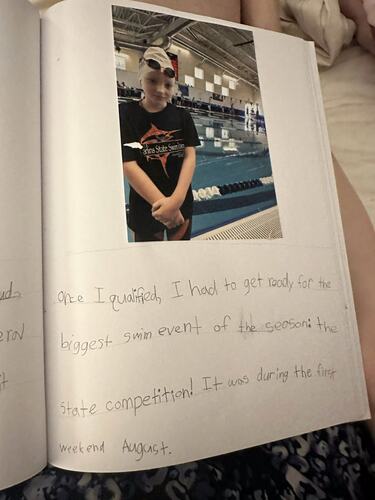 State Swim
Once I qualified, I had to get ready for the
biggest swim event of the season: the
state competition! It was during the first
weekend August.